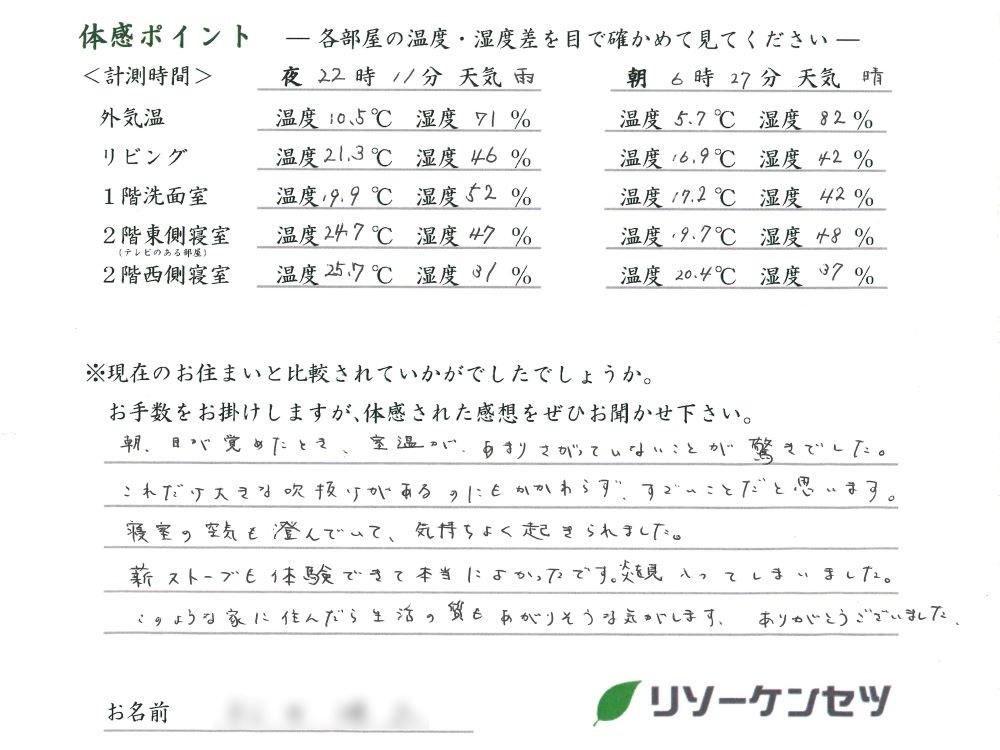 体感ポイント ―各部屋の温度・湿度差を目で確かめて見てください―
＜計測時間＞ 夜 22時 11分 天気 雨 朝 6時 27分 天気 晴
外気温 温度 10.5℃ 湿度 71 % 温度 5.7℃ 湿度 82 %
リビング 温度 21.3℃ 湿度 46 % 温度 16.9℃ 湿度 42 %
1階洗面室 温度 19.9℃ 湿度 52 % 温度 17.2℃ 湿度 42 %
2階東側寝室 温度 24.7℃ 湿度 47 % 温度 19.7℃ 湿度 48 %
(テレビのある部屋)
2階西側寝室 温度 25.7℃ 湿度 31 % 温度 20.4℃ 湿度 37 %
※現在のお住まいと比較されていかがでしたでしょうか。
お手数をお掛けしますが、体感された感想をぜひお聞かせ下さい。
朝、目が覚めたとき、室温が、あまりさがっていないことが驚きでした。
これだけ大きな吹抜けがあるのにもかかわらず、すごいことだと思います。
寝室の空気も澄んでいて、気持ちよく起きられました。
薪ストーブも体験できて本当によかったです。炎見入ってしまいました。
このような家に住んだら生活の質もあがりそうな気がします。ありがとうございました。
お名前
リソーケンセツ